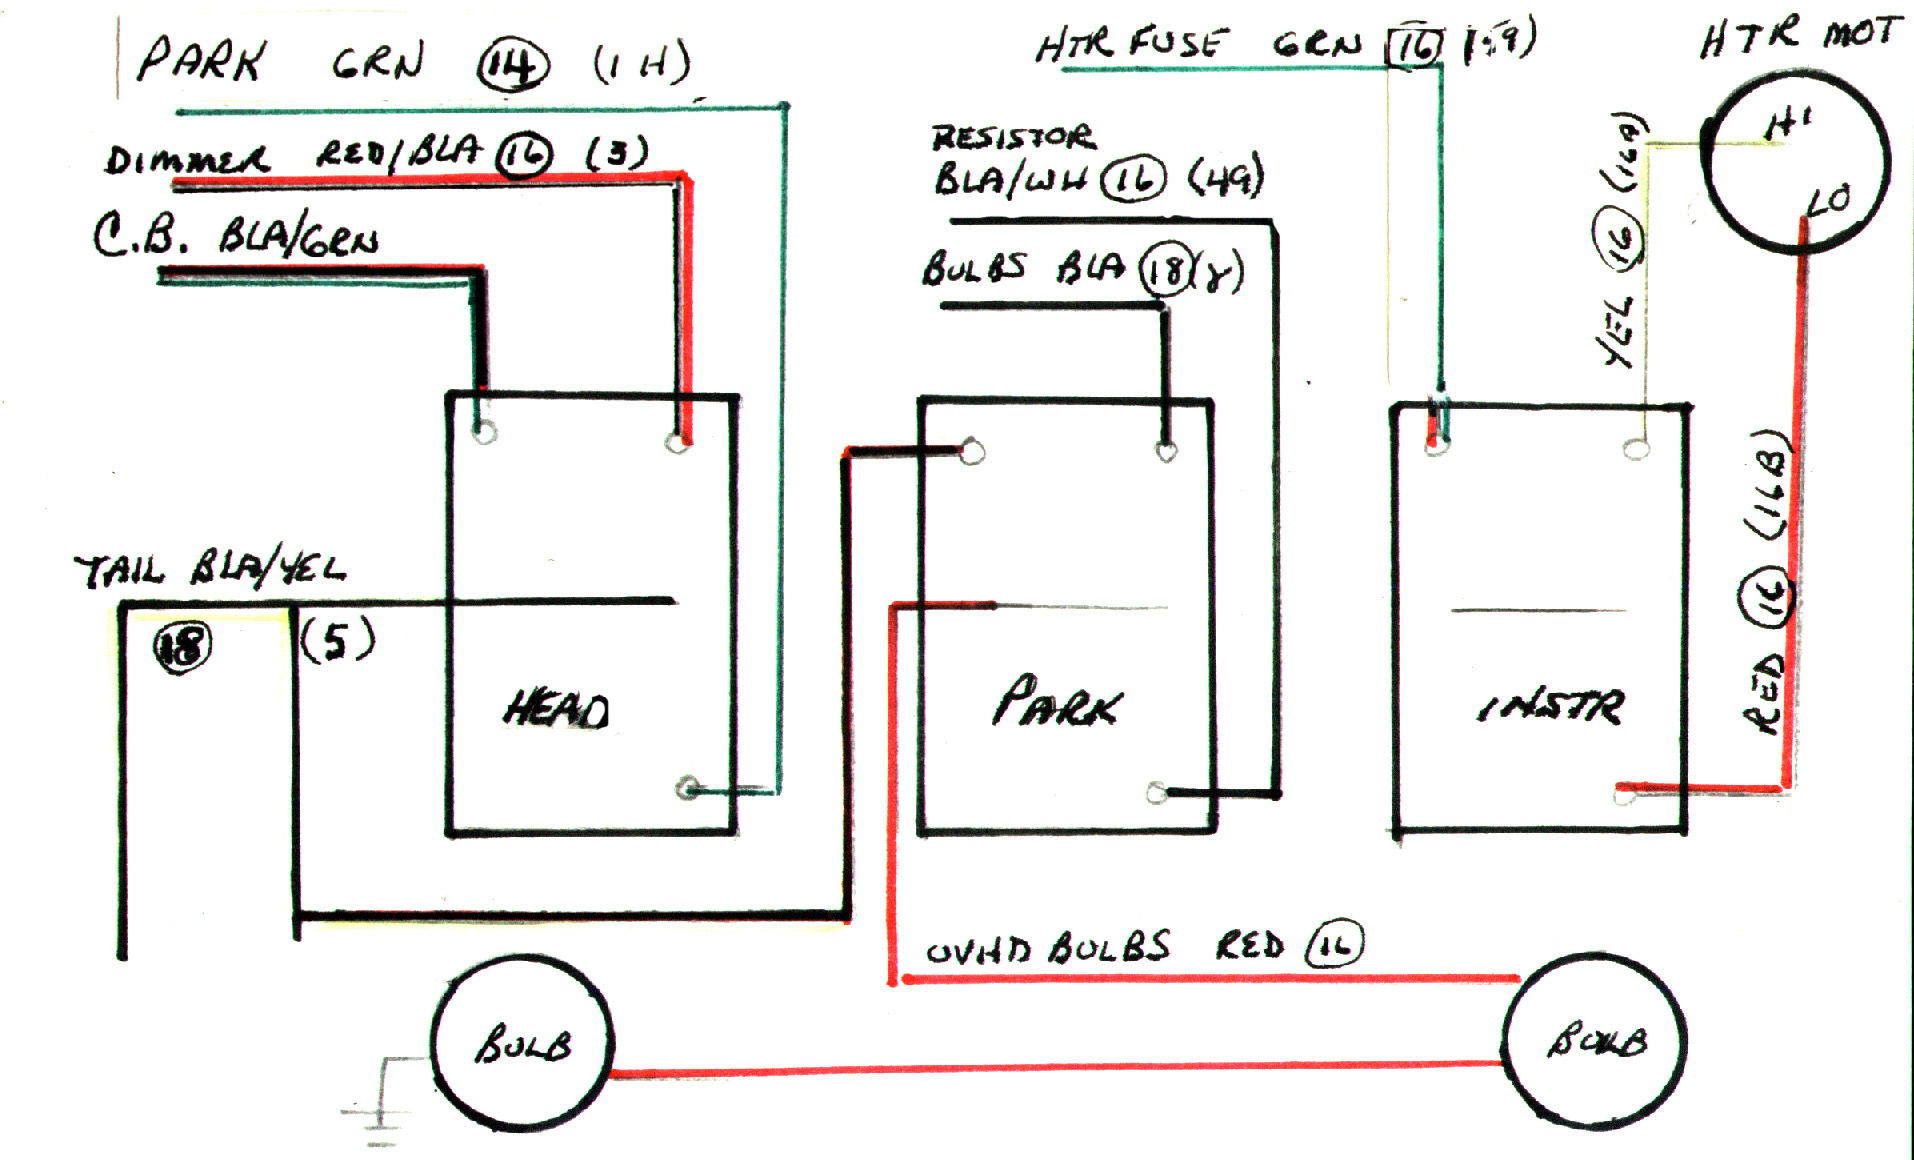 PARK GRN 14 (1H)
DIMMER RED/BLA 16 (3)
C.B. BLA/GRN
TAIL BLA/YEL
18 (5)
HEAD
RESISTOR
BLA/WH 16 (49)
BULBS BLA 18 (8)
PARK
HTR FUSE GRN 16
HTR MOT
HI
LO
YEL 16 (16A)
RED 16 (16B)
INSTR
OVHD BULBS RED 16
BULB
BULB